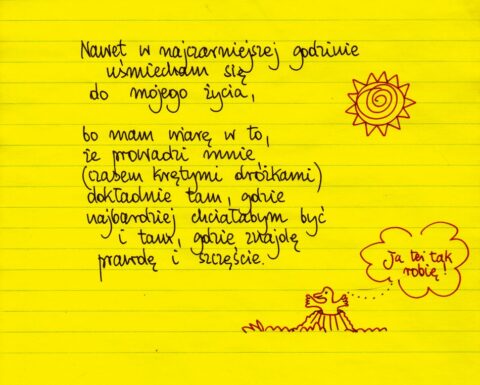 Nawet w najczarniejszej godzinie
uśmiecham się
do mojego życia,
bo mam wiarę w to,
że prowadzi mnie
(czasem krętymi dróżkami)
dokładnie tam, gdzie
najbardziej chciałabym być
i tam, gdzie znajdę
prawdę i szczęście.
Ja też tak
robię!